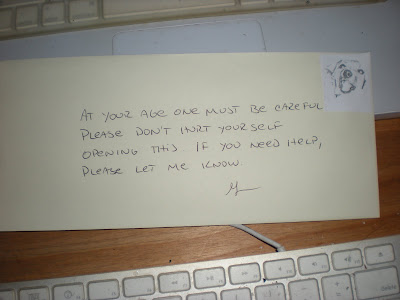 AT YOUR AGE ONE MUST BE CAREFUL
PLEASE DON'T HURT YOURSELF
OPENING THIS. IF YOU NEED HELP,
PLEASE LET ME KNOW.